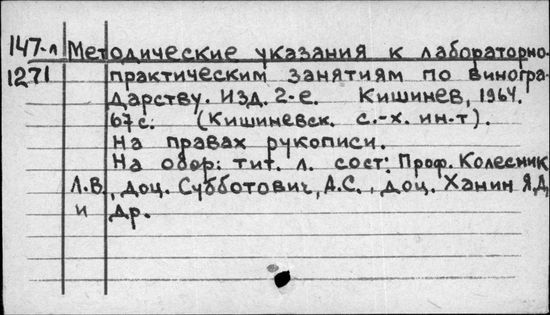 147-л Методические указания к лабораторно-
1271 практическим занятиям по виногра-
дарству. Изд. 2-е. Кишинев, 1964.
67 с. (Кишиневск. с.-х. ин-т).
На правах рукописи.
На обор: тит. л. сост: Проф. Колесник
Л.В., доц. Субботович, А.С., доц. Ханин Я.Д,
и др.